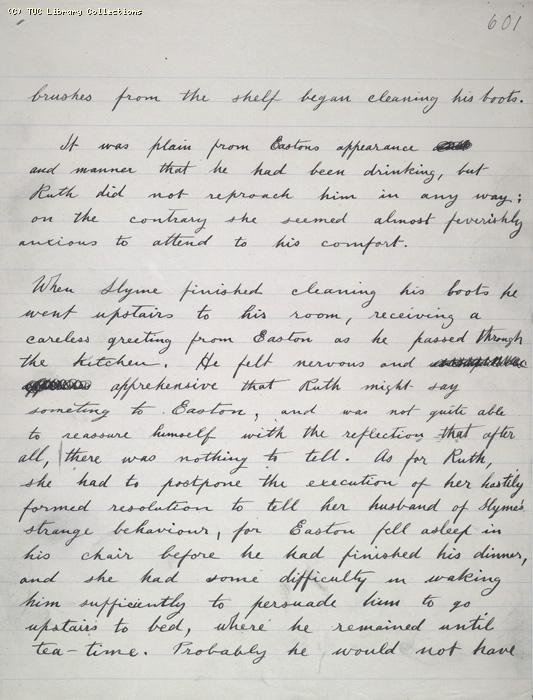 (C) TUC Library Collections
601
brushes from the shelf began cleaning his boots.
It was plain from Eastons appearance
and manner that he had been drinking, but
Ruth did not reproach him in any way;
on the contrary she seemed almost feverishly
anxious to attend to his comfort.
When Slyme finished cleaning his boots he
went upstairs to his room, receiving a
careless greeting from Easton as he passed through
the kitchen. He felt nervous and
apprehensive that Ruth might say
someting to Easton, and was not quite able
to reassure himself with the reflection that after
all, there was nothing to tell. As for Ruth,
she had to postpone the execution of her hastily
formed resolution to tell her husband of Slyme's
strange behaviour, for Easton fell asleep in
his chair before he had finished his dinner,
and she had some difficulty in waking
him sufficiently to persuade him to go
upstairs to bed, where he remained until
tea-time. Probably he would not have